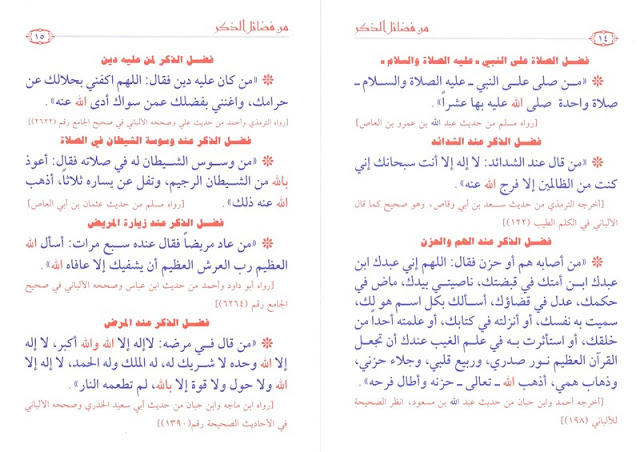 من فضائل الذكر
١٤
فضل الصلاة على النبي ـ عليه الصلاة والسلام ـ
❊ «مـن صلى علـى النبي ـ عليـه الصلاة والسـلام ـ
صلاة واحدة صلى الله عليه بها عشراً».
[رواه مسلم من حديث عبد الله بن عمرو بن العاص]
فضل الذكر عند الشدائد
❊ «من قال عند الشدائد: لا إله إلا أنت سبحانك إني
كنت من الظالمين إلا فرج الله عنه».
[أخرجه الترمذي من حديث سـعد بن أبي وقاص، وهو صحيح كما قال
الألباني في الكلم الطيب (١٢٢)]
فضل الذكر عند الهم والحزن
❊ «من أصابه هم أو حزن فقال: اللهم إني عبدك ابن
عبدك ابـن أمتك في قبضتك، ناصيتـي بيدك، ماض في
حكمك، عدل في قضاؤك، أسـألك بكل اسـم هو لك،
سميت به نفسك، أو أنزلته في كتابك، أو علمته أحداً من
خلقك، أو استأثرت بـه في علـم الغيب عندك أن تجعل
القرآن العظيم نور صدري، وربيع قلبي، وجلاء حزني،
وذهاب همي، أذهب الله ـ تعالى ـ حزنه وأطال فرحه».
[أخرجه أحمد وابن حبان من حديث عبد الله بن مسعود، انظر الصحيحة
للألباني (١٩٨)]
من فضائل الذكر
١٥
فضل الذكر لمن عليه دين
❊ «من كان عليه دين فقال: اللهم اكفني بحلالك عن
حرامك، واغنني بفضلك عمن سواك أدى الله عنه».
[رواه الترمذي وأحمد من حديث علي وصححه الألباني في صحيح الجامع رقم (٢٦٢٢)]
فضل الذكر عند وسوسة الشيطان في الصلاة
❊ «من وسـوس الشـيطان له في صلاته فقال: أعوذ
بالله من الشـيطان الرجيم، وتفل عن يساره ثلاثاً، أذهب
الله عنه ذلك». [رواه مسلم من حديث عثمان بن أبي العاص]
فضل الذكر عند زيارة المريض
❊ «من عاد مريضاً فقال عنده سبع مرات: أسأل الله
العظيم رب العرش العظيم أن يشفيك إلا عافاه الله».
[رواه أبو داود وأحمد من حديث ابن عباس وصححه الألباني في صحيح
الجامع رقم (٦٢٦٤)]
فضل الذكر عند المرض
❊ «من قال في مرضه: لاإله إلا الله والله أكبر، لا إله
إلا الله وحده لا شـريك له، له الملك وله الحمد، لا إله إلا
الله ولا حول ولا قوة إلا بالله، لم تطعمه النار».
[رواه ابن ماجه وابن حبان من حديث أبي سعيد الخدري وصححه الألباني
في الأحاديث الصحيحة رقم(١٣٩٠)]